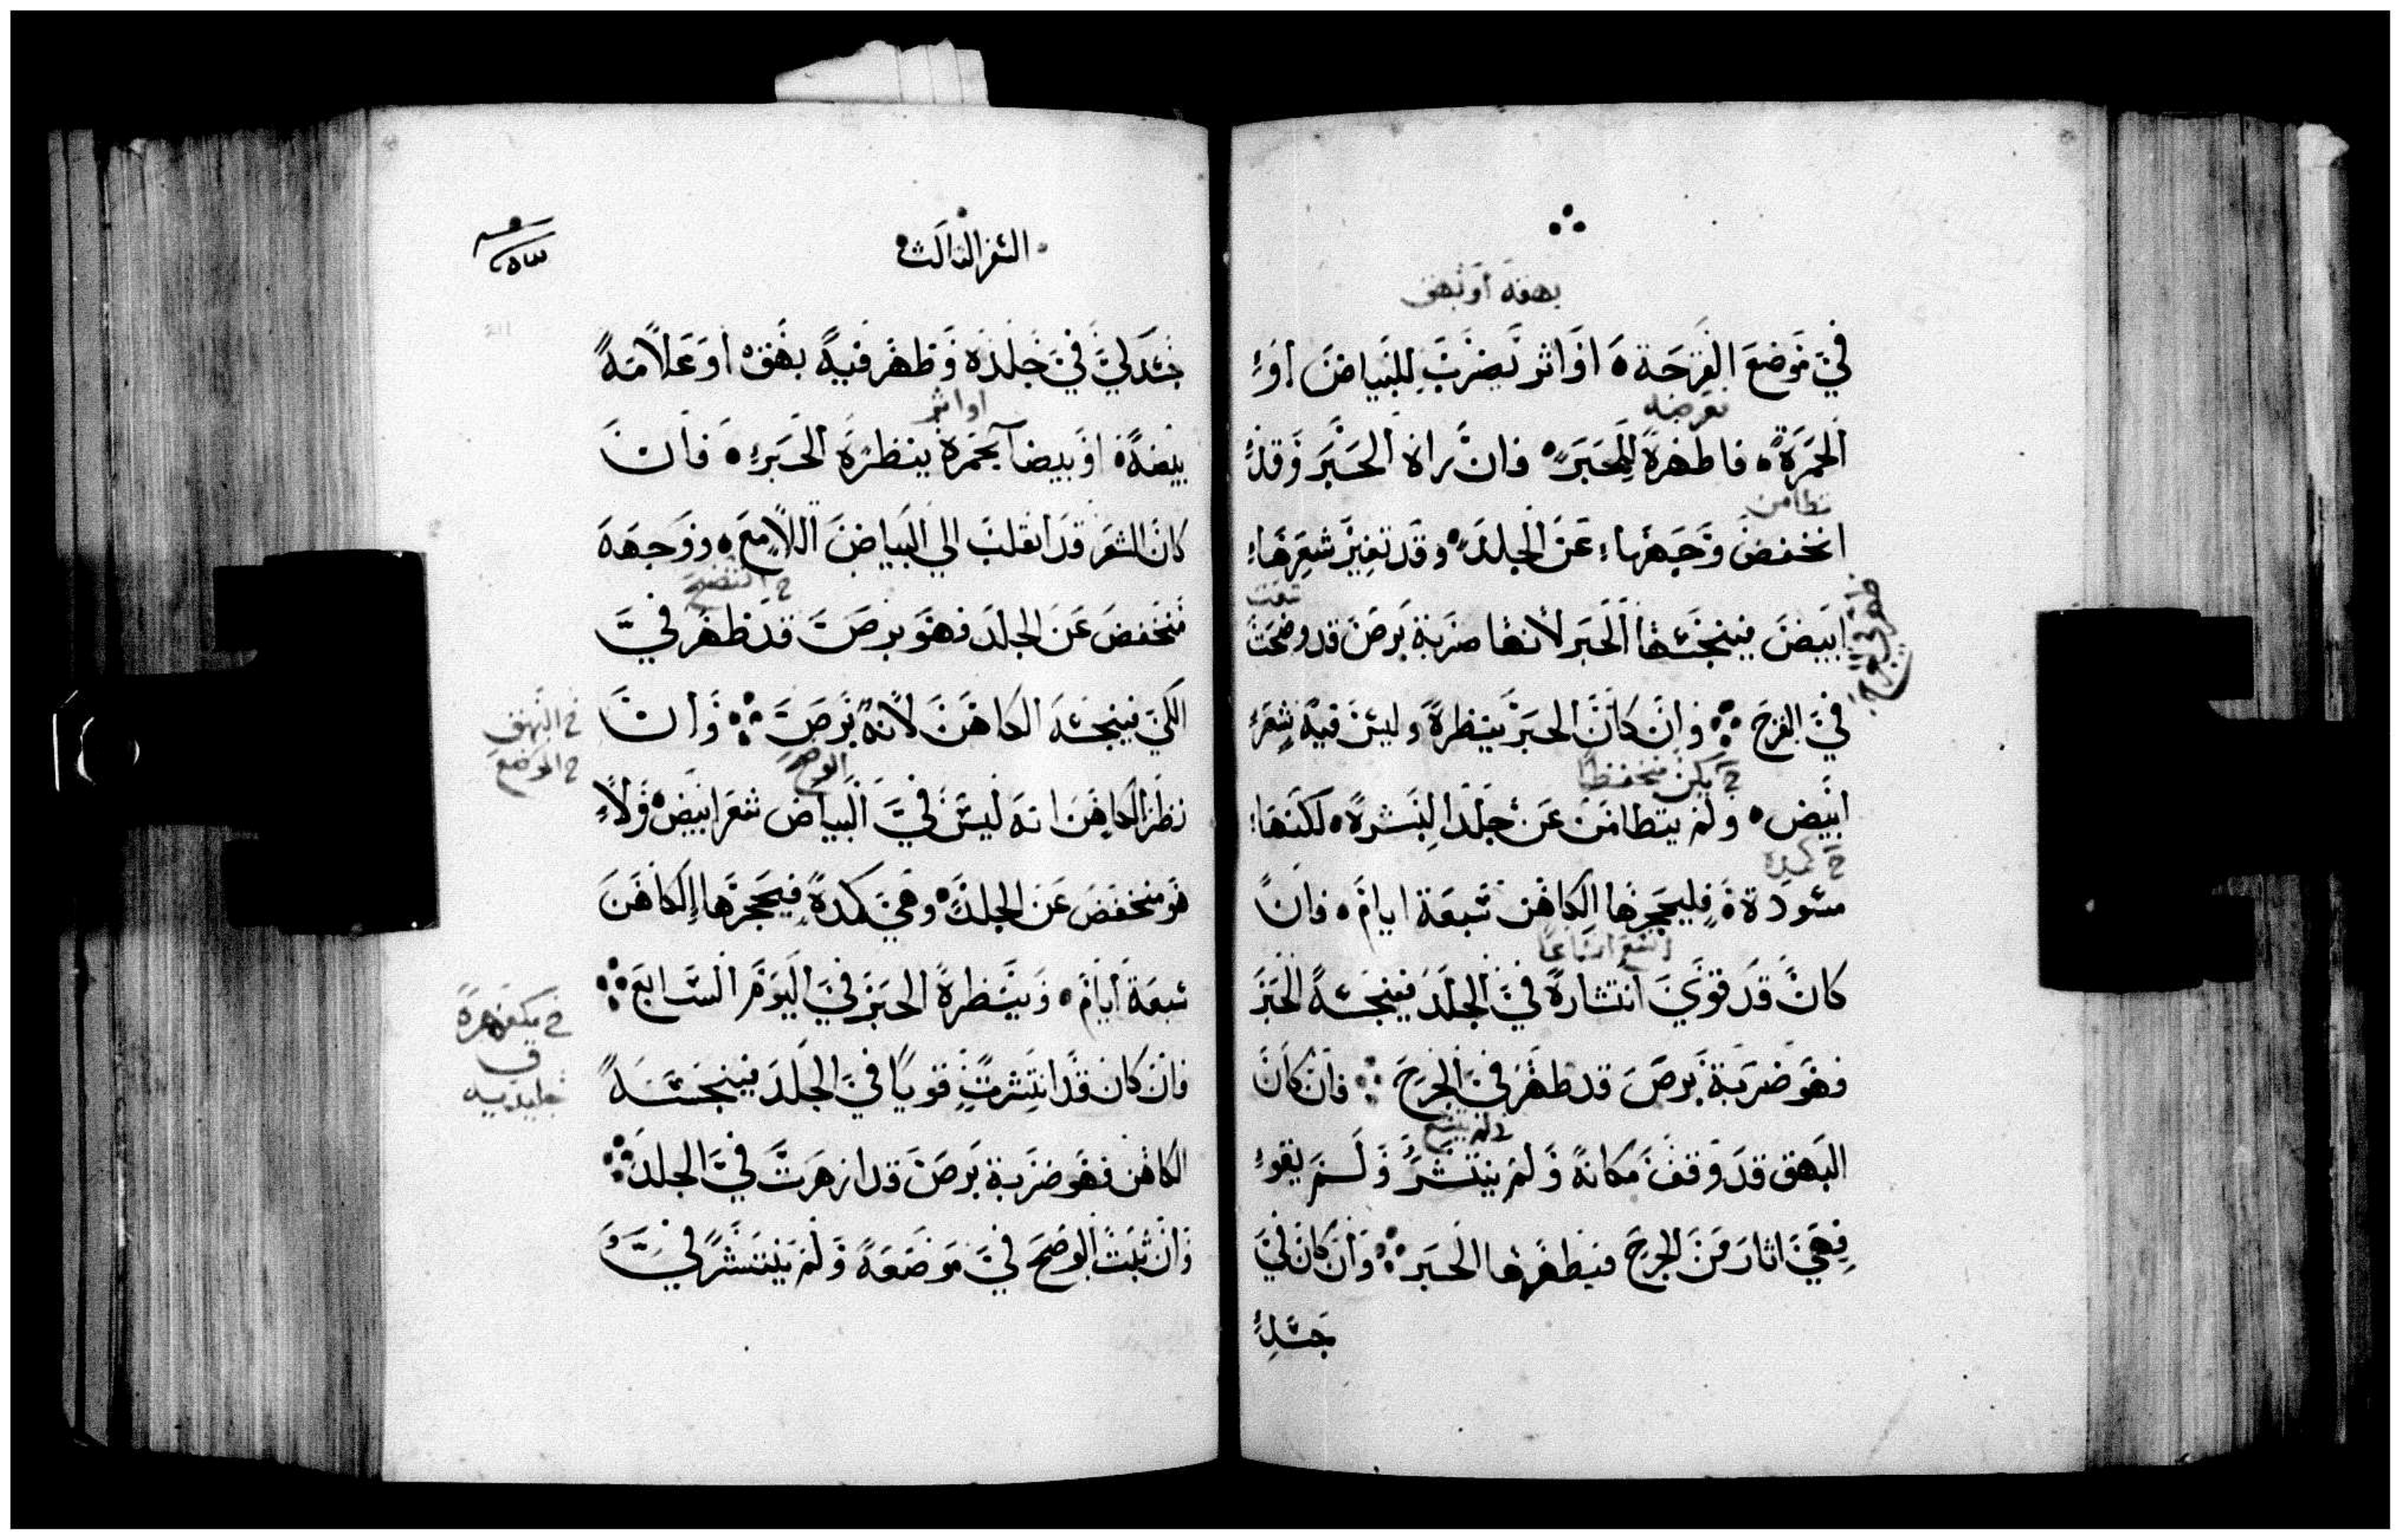 بهقة او بهق
في موضع القرحة او اثر يضرب للبياض او
الحمرة فاظهره للحبر فان راه الحبر وقد
تطامن
انخفض وجهها عن الجلد وقد تغير شعرها
ابيض فينجسها الحبر لانها ضربة برص قد وضحت
في القرح وان كان الحبر ينظره وليس فيه شعر
ح يكن منخفضا
ابيض ولم يتطامن عن جلد البشرة لكنها
ح كمدة
مسودة فليحجرها الكاهن سبعة ايام فان
كان قد قوي انتشاره في الجلد فينجسه الحبر
فهو ضربة برص قد ظهر في الجرح فان كان
البهق قد وقف مكانه ولم ينتشر ولم يقو
فهي اثار من الجرح فيطهرها الحبر وان كان في
جسد
السفر الثالث
جسد لي في جلده وظهر فيه بهق او علامة
او اثر
بيضة او بيضا بحمرة ينظره الحبر فان
كان الشعر قد انقلب الي البياض اللامع ووجهه
منخفض عن الجلد فهو برص قد ظهر في
الكي فينجسه الكاهن لانه برص وان
خ البهق
ح الوضح
نظر الكاهن انه ليس في البياض شعر ابيض ولا
هو منخفض عن الجلد وهي كمدة فيحجرها الكاهن
سبعة ايام وينظره الحبر في اليوم السابع
فان كان قد انتشرت قويا في الجلد فينجسه
الكاهن فهو ضربة برص قد ازهرت في الجلد
وان ثبت الوضح في موضعه ولم ينتشر في